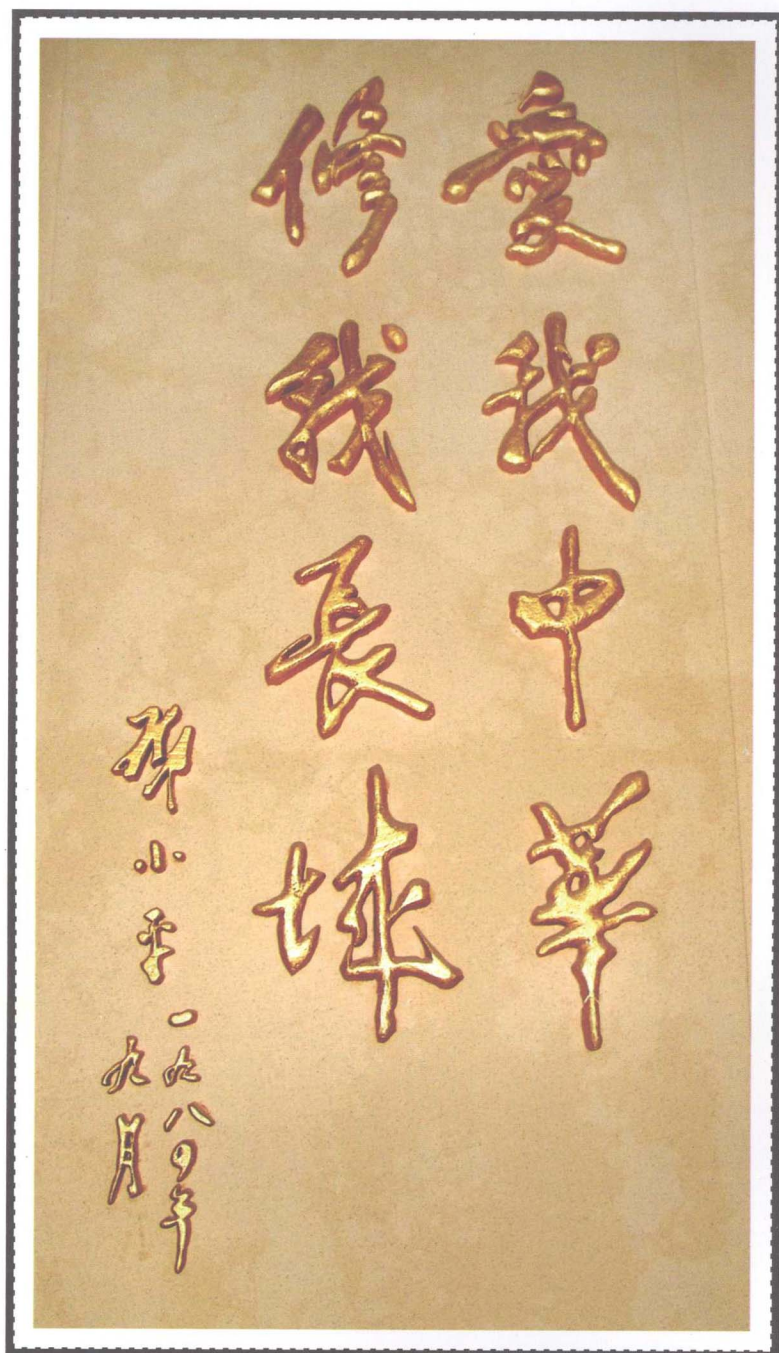 愛我中華
修我長城
鄧小平
一九八〇年
九月